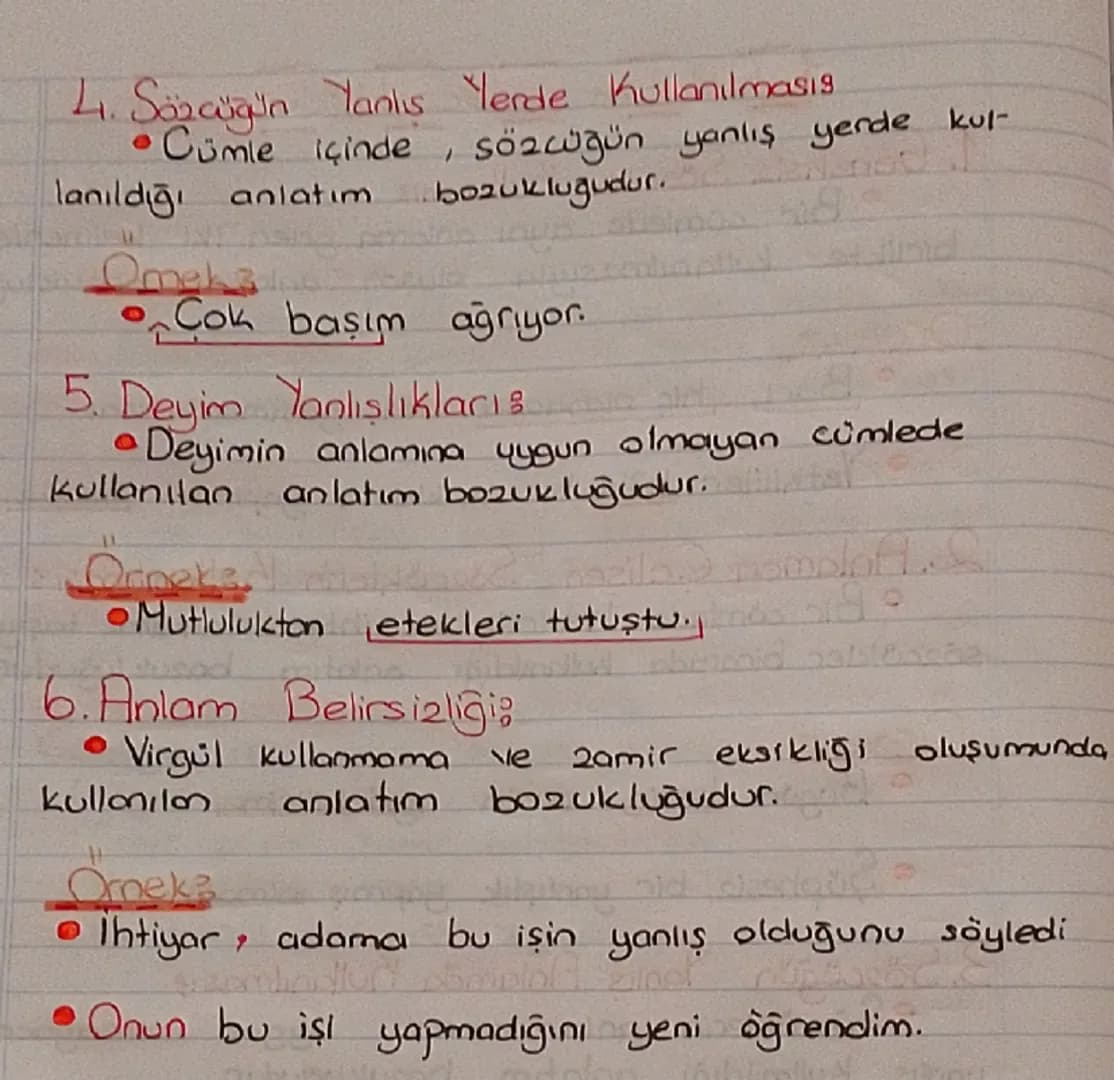 4. Sözcüğün Yanlış Yerde Kullanılması:
• Cümle içinde, sözcüğün yanlış yerde kul-
lanıldığı anlatım bozukluğudur.
Örnek:
• Çok başım ağrıyor.
5. Deyim Yanlışlıkları:
• Deyimin anlamına uygun olmayan cümlede
kullanılan anlatım bozukluğudur.
Örnek:
• Mutluluktan etekleri tutuştu.
6. Anlam Belirsizliği:
• Virgül kullanmama ve zamir eksikliği oluşumunda
kullanılan anlatım bozukluğudur.
Örnek:
• İhtiyar, adama bu işin yanlış olduğunu söyledi
• Onun bu işi yapmadığını yeni öğrendim.